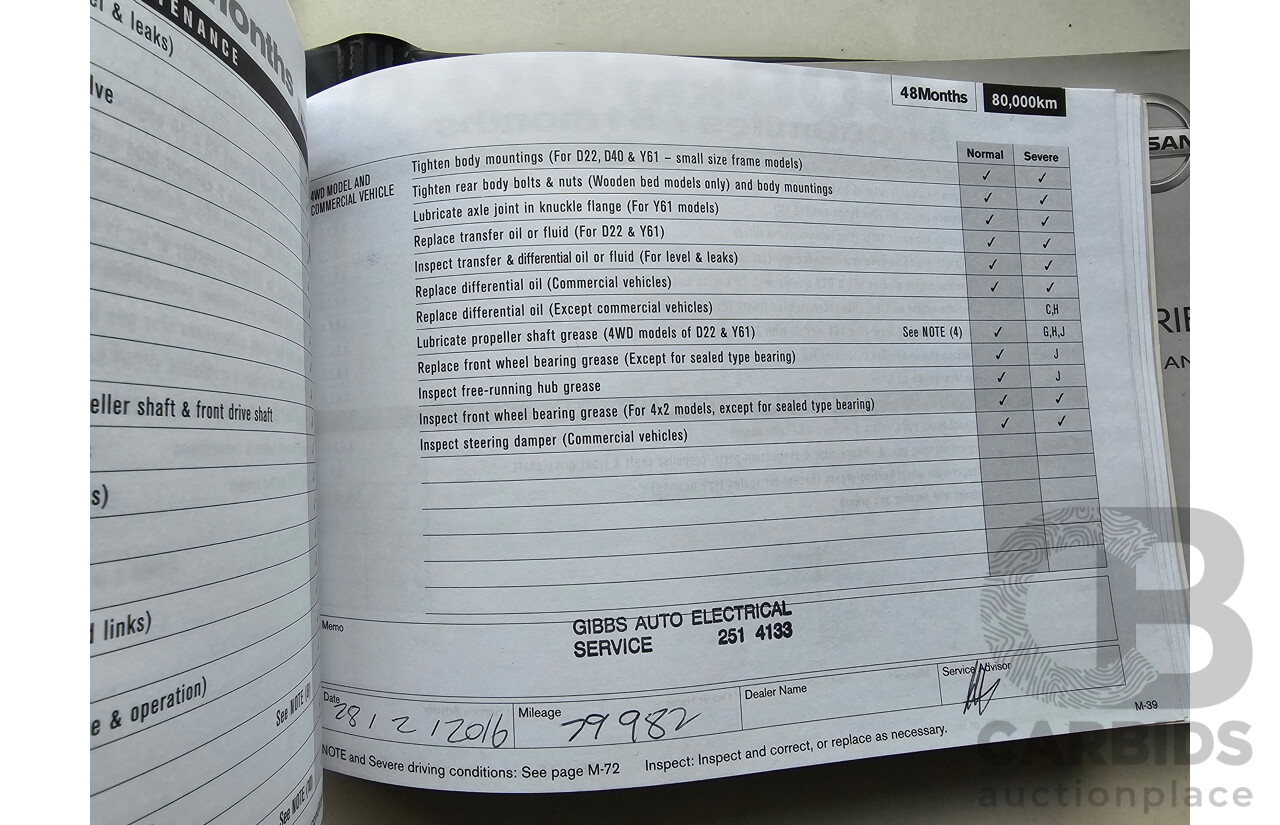 months
TENANCE
& leaks)
lve
eller shaft & front drive shaft
s)
links)
e & operation)
See NOTE
See NOTE
48Months 80,000km
Normal Severe
4WD MODEL AND
COMMERCIAL VEHICLE
Tighten body mountings (For D22, D40 & Y61 – small size frame models) ✓ ✓
Tighten rear body bolts & nuts (Wooden bed models only) and body mountings ✓ ✓
Lubricate axle joint in knuckle flange (For Y61 models) ✓ ✓
Replace transfer oil or fluid (For D22 & Y61) ✓ ✓
Inspect transfer & differential oil or fluid (For level & leaks) ✓ ✓
Replace differential oil (Commercial vehicles) ✓ ✓
Replace differential oil (Except commercial vehicles) C,H
Lubricate propeller shaft grease (4WD models of D22 & Y61) See NOTE (4) ✓ G,H,J
Replace front wheel bearing grease (Except for sealed type bearing) ✓ J
Inspect free-running hub grease ✓ J
Inspect front wheel bearing grease (For 4x2 models, except for sealed type bearing) ✓ ✓
Inspect steering damper (Commercial vehicles) ✓ ✓
Memo
GIBBS AUTO ELECTRICAL
SERVICE 251 4133
Date
28/2/2016
Mileage
79982
Dealer Name
Service Advisor
M-39
NOTE and Severe driving conditions: See page M-72 Inspect: Inspect and correct, or replace as necessary.
SAN
RIE
AN
CARBIDS
auctionplace